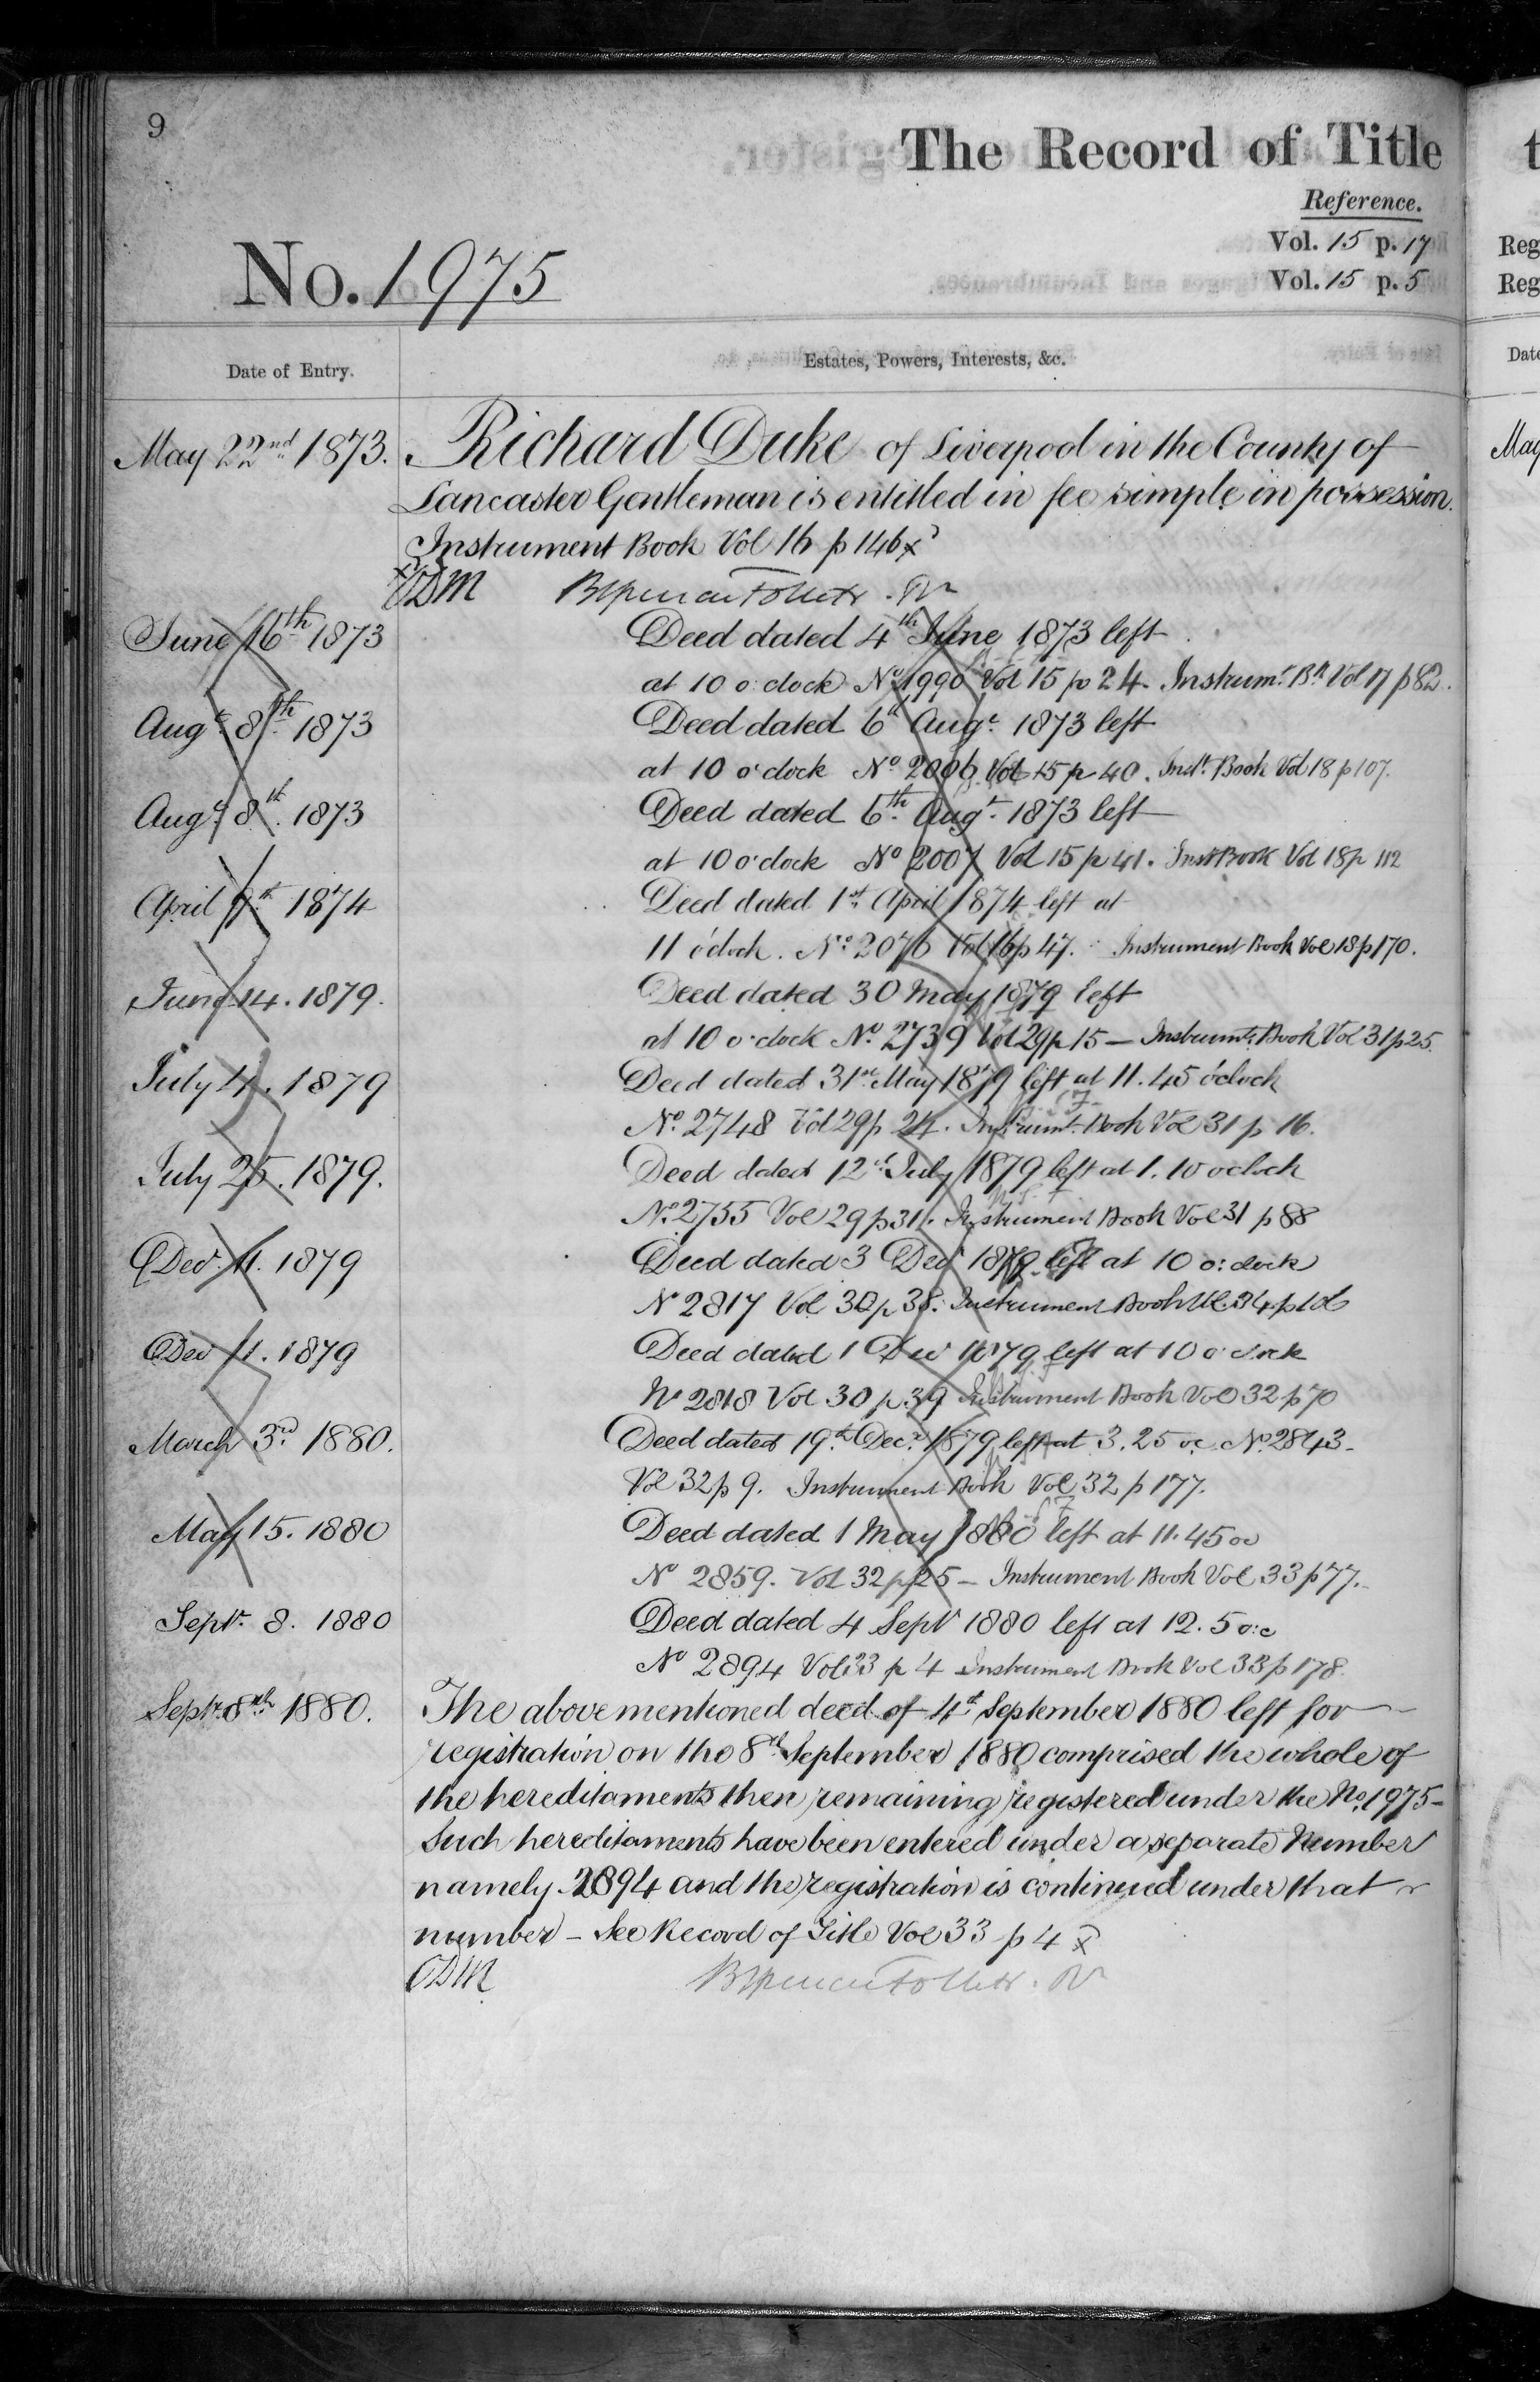 9
The Record of Title
Reference.
Vol. 15 p. 17
Vol. 15 p. 5
No. 1975
Date of Entry.
Estates, Powers, Interests, &c.
May 22nd 1873. Richard Duke of Liverpool in the County of
Lancaster Gentleman is entitled in fee simple in possession.
Instrument Book Vol 16 p 146 x
June 16th 1873 Deed dated 4th June 1873 left
at 10 o'clock No 1990 Vol 15 p 24. Instrumt. Bk Vol 17 p 82.
Augt. 8th 1873 Deed dated 6th Augt. 1873 left
at 10 o'clock No 2006 Vol 15 p 40. Inst. Book Vol 18 p 107.
Augt. 8th. 1873 Deed dated 6th Augt. 1873 left
at 10 o'clock No 2007 Vol 15 p 41. Inst Book Vol 18 p 112
April 1874 Deed dated 1st April 1874 left at
11 o'clock. No. 2076 Vol 16 p 47. Instrument Book Vol 18 p 170.
June 14. 1879. Deed dated 30 May 1879 left
at 10 o'clock No. 2739 Vol 29 p 15 — Instrumt. Book Vol 31 p 25.
July 4. 1879 Deed dated 31st May 1879 left at 11.45 o'clock
No. 2748 Vol 29 p 24. Instrumt. Book Vol 31 p 16.
July 25. 1879. Deed dated 12th July 1879 left at 1.10 o'clock
No. 2755 Vol 29 p 31. Instrument Book Vol 31 p 88
Dec. 11. 1879 Deed dated 3 Dec 1879 left at 10 o:clock
No 2817 Vol 30 p 38. Instrument Book Vol. 34 p
Dec 11. 1879 Deed dated 1 Dec 1879 left at 10 o'clock
No 2818 Vol 30 p 39 Instrument Book Vol 32 p 70
March 3rd 1880. Deed dated 19th Decr. 1879 left at 3.25 oc. No. 2843 -
Vol 32 p 9. Instrument Book Vol 32 p 177.
May 15. 1880 Deed dated 1 May 1880 left at 11.45 oc
No 2859. Vol 32 p 25 - Instrument Book Vol 33 p 77.
Sept. 8. 1880 Deed dated 4 Sept 1880 left at 12.5 o:c
No 2894 Vol 33 p 4 Instrument Book Vol 33 p 178.
Sept. 8th 1880. The above mentioned deed of 4th September 1880 left for
registration on the 8th September 1880 comprised the whole of
the hereditaments then remaining registered under the No. 1975 -
Such hereditaments have been entered under a separate Number
namely 2894 and the registration is continued under that
number - See Record of Title Vol 33 p 4 x
Reg
Reg
Date
May